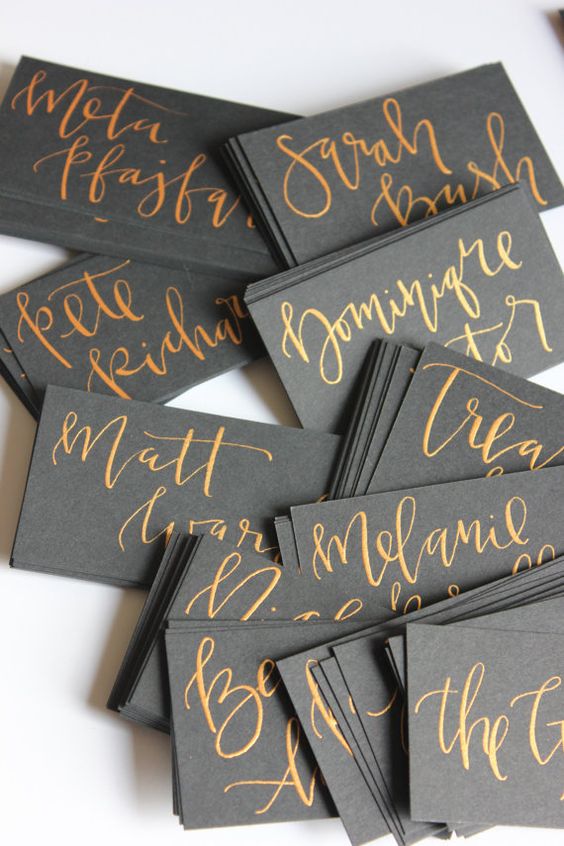 Meta
Pfajfar
Sarah
Bush
Pete
Richar
Dominiqre
tor
Trea
Matt
War
Melanie
Be
the G